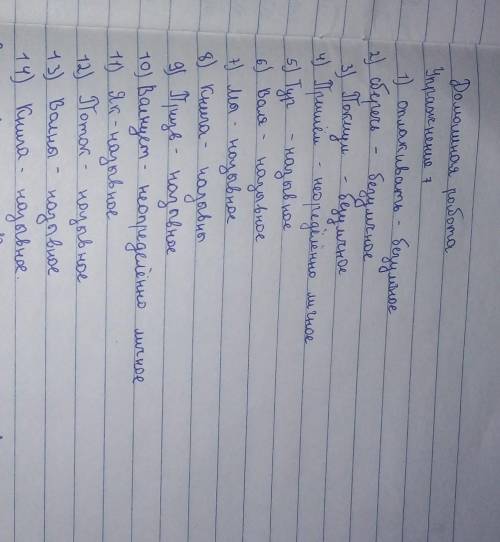 Домашная робота
Упражнение 7
1) оплакивать - безумное
2) сберечь - безумичное
3) Покинул - безумичное
4) Пришлём - неоределённо личное
5) Тур - назывное
6) Валя - назывное
7) Мы - назывное
8) Книга - назывны
9) Призв - назывное
10) Ванцует - неопределённо личное
11) Як - назывное
12) Поток - назывное
13) Волны - назывное
14) Книга - назывное.